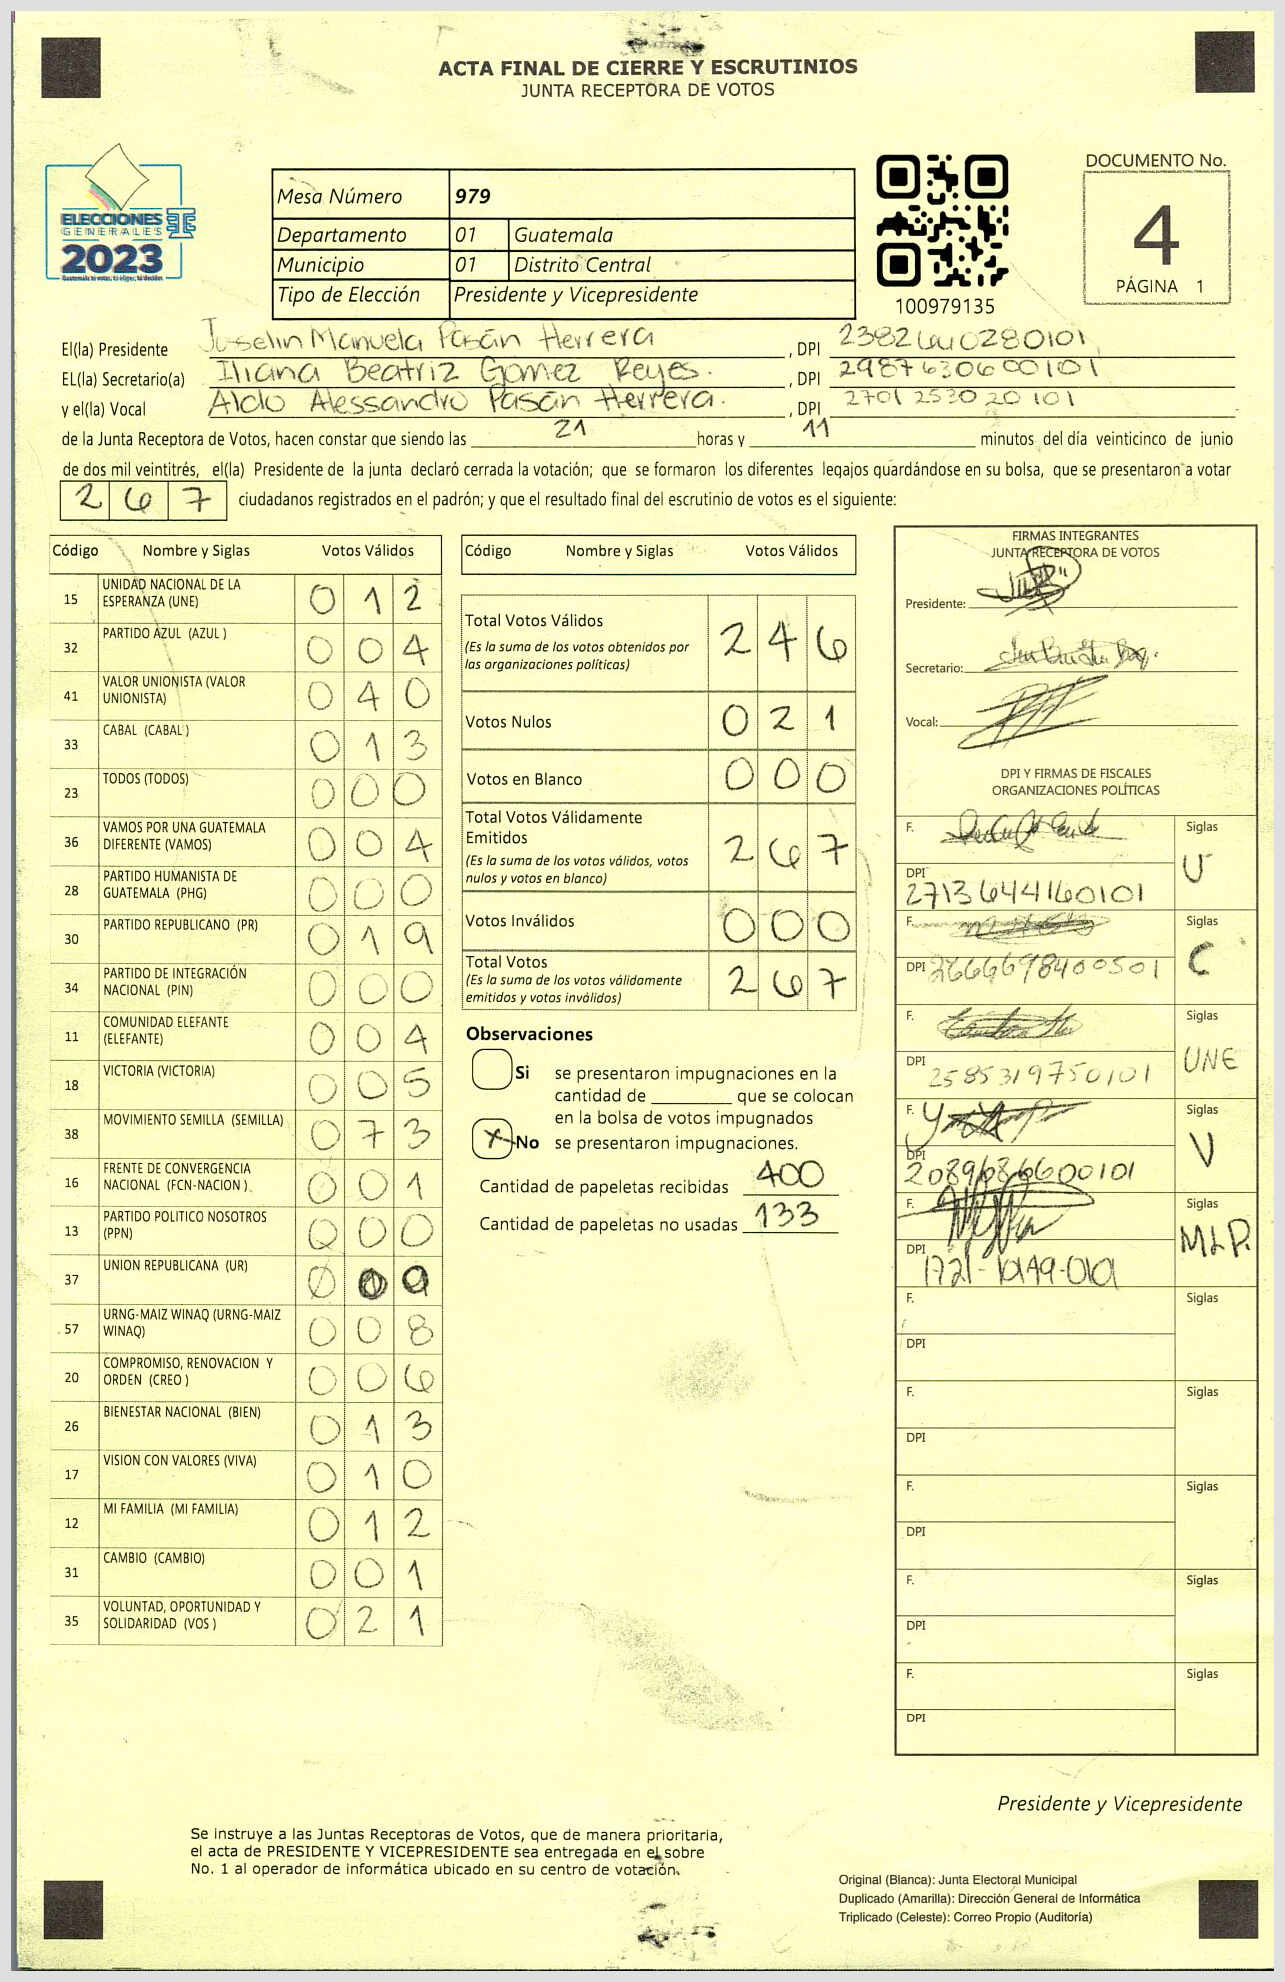 ACTA FINAL DE CIERRE Y ESCRUTINIOS
JUNTA RECEPTORA DE VOTOS
ELECCIONES
GENERALES
2023
Mesa Número 979
Departamento 01 Guatemala
Municipio 01 Distrito Central
Tipo de Elección Presidente y Vicepresidente
100979135
DOCUMENTO No.
4
PÁGINA 1
El(la) Presidente Juselin Manuela Pasán Herrera , DPI 2382640280101
EL(la) Secretario(a) Iliana Beatriz Gomez Reyes. , DPI 2987630600101
y el(la) Vocal Aldo Alessandro Pasán Herrera. , DPI 2701253020101
de la Junta Receptora de Votos, hacen constar que siendo las 21 horas y 11 minutos del día veinticinco de junio
de dos mil veintitrés, el(la) Presidente de la junta declaró cerrada la votación; que se formaron los diferentes legajos guardándose en su bolsa, que se presentaron a votar
267 ciudadanos registrados en el padrón; y que el resultado final del escrutinio de votos es el siguiente:
Código Nombre y Siglas Votos Válidos
15 UNIDAD NACIONAL DE LA ESPERANZA (UNE) 012
32 PARTIDO AZUL (AZUL ) 004
41 VALOR UNIONISTA (VALOR UNIONISTA) 040
33 CABAL (CABAL ) 013
23 TODOS (TODOS) 000
36 VAMOS POR UNA GUATEMALA DIFERENTE (VAMOS) 004
28 PARTIDO HUMANISTA DE GUATEMALA (PHG) 000
30 PARTIDO REPUBLICANO (PR) 019
34 PARTIDO DE INTEGRACIÓN NACIONAL (PIN) 000
11 COMUNIDAD ELEFANTE (ELEFANTE) 004
18 VICTORIA (VICTORIA) 005
38 MOVIMIENTO SEMILLA (SEMILLA) 073
16 FRENTE DE CONVERGENCIA NACIONAL (FCN-NACION ) 001
13 PARTIDO POLITICO NOSOTROS (PPN) 000
37 UNION REPUBLICANA (UR) 009
57 URNG-MAIZ WINAQ (URNG-MAIZ WINAQ) 008
20 COMPROMISO, RENOVACION Y ORDEN (CREO ) 006
26 BIENESTAR NACIONAL (BIEN) 013
17 VISION CON VALORES (VIVA) 010
12 MI FAMILIA (MI FAMILIA) 012
31 CAMBIO (CAMBIO) 001
35 VOLUNTAD, OPORTUNIDAD Y SOLIDARIDAD (VOS ) 021
Código Nombre y Siglas Votos Válidos
Total Votos Válidos 246
(Es la suma de los votos obtenidos por
las organizaciones políticas)
Votos Nulos 021
Votos en Blanco 000
Total Votos Válidamente
Emitidos 267
(Es la suma de los votos válidos, votos
nulos y votos en blanco)
Votos Inválidos 000
Total Votos 267
(Es la suma de los votos válidamente
emitidos y votos inválidos)
Observaciones
Si se presentaron impugnaciones en la
cantidad de ________ que se colocan
en la bolsa de votos impugnados
X No se presentaron impugnaciones.
Cantidad de papeletas recibidas 400
Cantidad de papeletas no usadas 133
FIRMAS INTEGRANTES
JUNTA RECEPTORA DE VOTOS
Presidente:
Secretario:
Vocal:
DPI Y FIRMAS DE FISCALES
ORGANIZACIONES POLÍTICAS
F. Siglas U
DPI 2713644160101
F. Siglas C
DPI 2666698400501
F. Siglas UNE
DPI 2585319750101
F. Siglas V
DPI 2089686600101
F. Siglas MLP.
DPI
F. Siglas
DPI
F. Siglas
DPI
F. Siglas
DPI
F. Siglas
DPI
F. Siglas
DPI
Presidente y Vicepresidente
Se instruye a las Juntas Receptoras de Votos, que de manera prioritaria,
el acta de PRESIDENTE Y VICEPRESIDENTE sea entregada en el sobre
No. 1 al operador de informática ubicado en su centro de votación.
Original (Blanca): Junta Electoral Municipal
Duplicado (Amarilla): Dirección General de Informática
Triplicado (Celeste): Correo Propio (Auditoría)